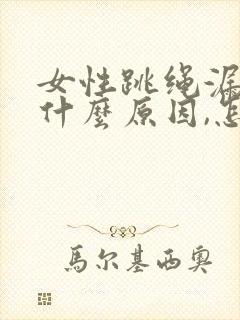 女性跳绳漏
什麼原因,怎
馬尔基西奥